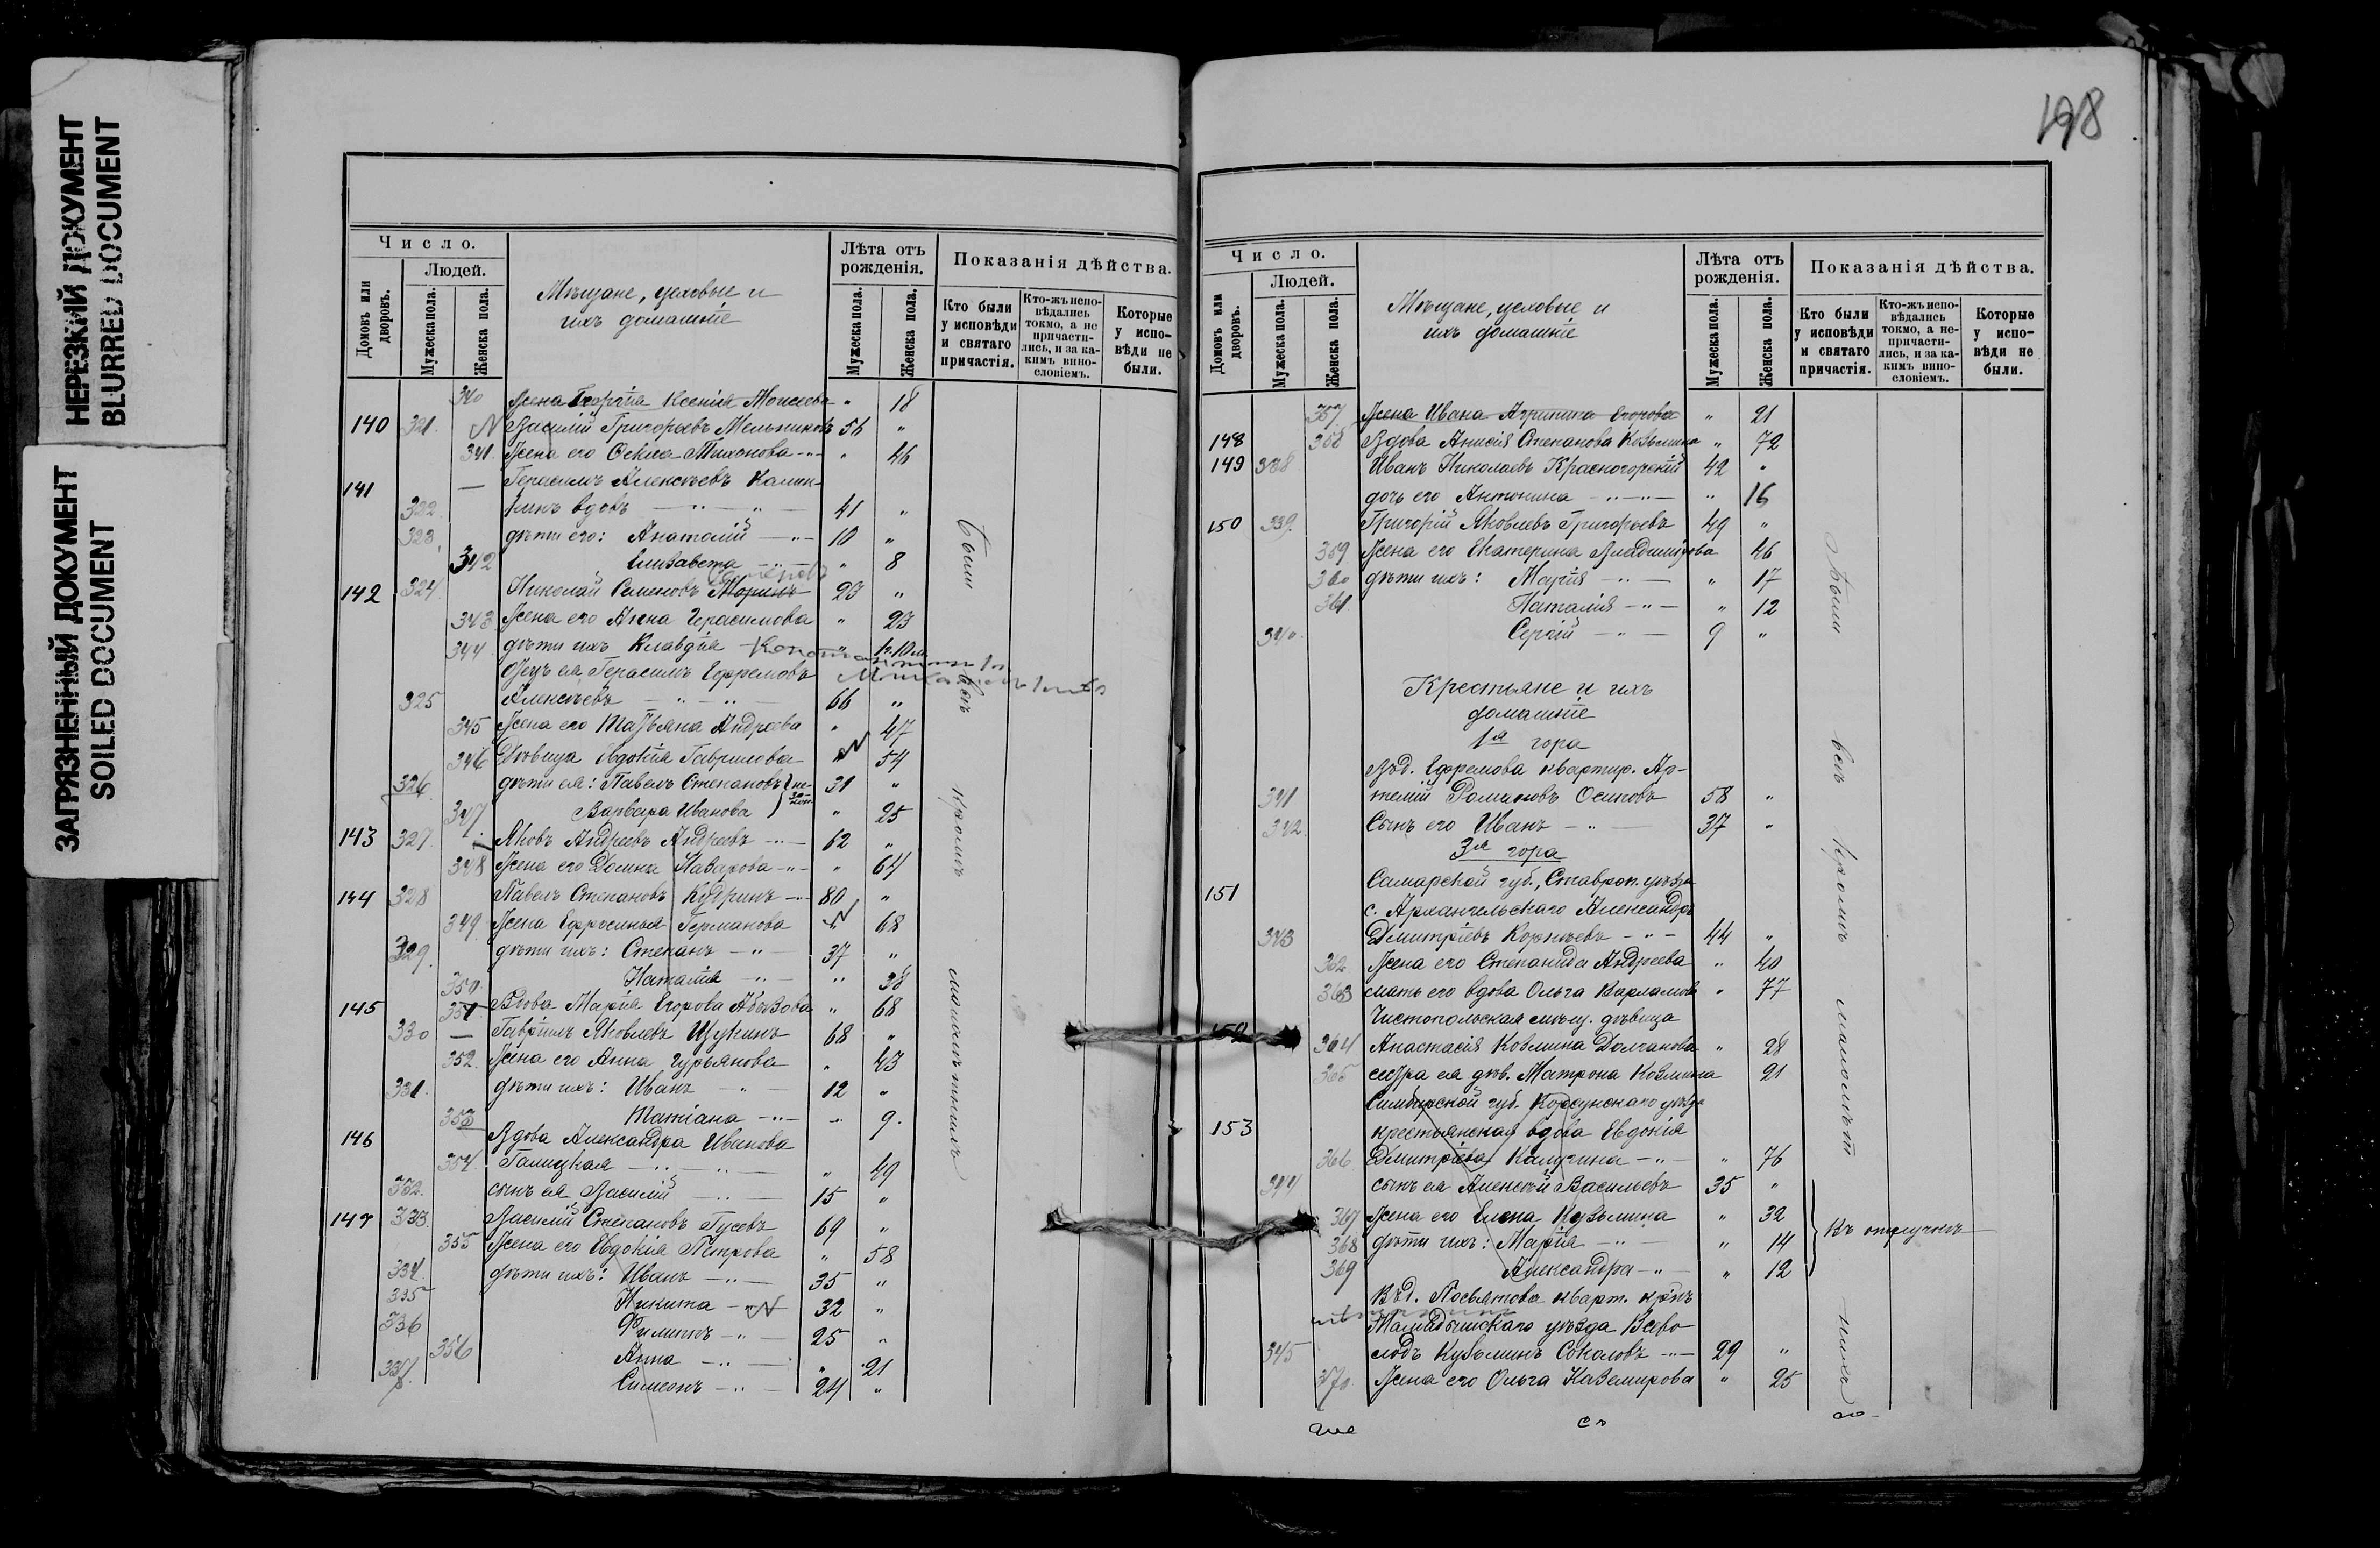 НЕРЕЗКИЙ ДОКУМЕНТ
BLURRED DOCUMENT
ЗАГРЯЗНЕННЫЙ ДОКУМЕНТ
SOILED DOCUMENT
Число.
Людей.
Домовъ или дворовъ.
Мужеска пола.
Женска пола.
Мѣщане, цеховые и
ихъ домашніе
Лѣта отъ рожденія.
Мужеска пола.
Женска пола.
Показанія дѣйства.
Кто были у исповѣди и святаго причастія.
Кто-жъ исповѣдались токмо, а не причастились, и за какимъ винословіемъ.
Которые у исповѣди не были.
340 Жена Георгія Ксенія Моисеева " 18
140 321. Василій Григорьевъ Мельниковъ 56 "
341. Жена его Тихонова " 46
141 Герасимъ Алексѣевъ Калин-
322. кинъ вдовъ 41 "
323. дѣти его: Анатолій 10 "
342 Елизавета " 8
142 324. Николай Семеновъ 23 "
343. Жена его Анна Герасимова " 23
344 дѣти ихъ Клавдія
Отецъ ея Герасимъ Ефремовъ
325 Алексѣевъ 66 "
345 Жена его Татьяна Андреева " 47
346 Дѣвица Евдокія Гаврилова " 54
326. дѣти ея: Павелъ Степановъ } не-за-кон. 31 "
347 Варвара Иванова " 25
143 327. Яковъ Андреевъ Андреевъ 62 "
348 Жена его Домна Назарова " 64
144 328 Павелъ Степановъ Кудринъ 80 "
349. Жена Ефросинья Германова 68
329. дѣти ихъ: Степанъ 37 "
350. Наталія " 38
145 351 Вдова Марія Егорова Абызова " 68
330 Гавріилъ Яковлевъ 68 "
352. Жена его Анна Гурьянова " 43
331. дѣти ихъ: Иванъ 12 "
353 Татіана " 9.
146 Вдова Александра Иванова
354. Галицкая " 49
332. сынъ ея Василій 15 "
147 333. Василій Степановъ Гусевъ 69 "
355 Жена его Евдокія Петрова " 58
334. дѣти ихъ: Иванъ 35 "
335 Никита 32 "
336 Филиппъ 25 "
356 Анна " 21
337. Симеонъ 24 "
Были всѣ кромѣ малолѣтнихъ
198
Число.
Людей.
Домовъ или дворовъ.
Мужеска пола.
Женска пола.
Мѣщане, цеховые и
ихъ домашніе
Лѣта отъ рожденія.
Мужеска пола.
Женска пола.
Показанія дѣйства.
Кто были у исповѣди и святаго причастія.
Кто-жъ исповѣдались токмо, а непричастились, и за какимъ винословіемъ.
Которые у исповѣди не были.
357. Жена Ивана Агрипина Егорова " 21
148 358 Вдова Анисія Степанова Козьмина " 72
149 338 Иванъ Николаевъ Красногорскій 42 "
дочь его Антонина " 16
150 339. Григорій Яковлевъ Григорьевъ 49 "
359 Жена его Екатерина Владимірова 46
360 дѣти ихъ: Марія " 17
361. Наталія " 12
340. Сергій 9 "
Крестьяне и ихъ
домашніе
1я гора
Въ д. Ефремова квартир. Ар-
341 темій Романовъ Осиповъ 58 "
342. Сынъ его Иванъ 37 "
3я гора
151 Самарской губ., Ставроп. уѣзда
с. Архангельскаго Александръ
343 Дмитріевъ Корнѣевъ 44 "
362. Жена его Степанида Андреева " 40
363 мать его вдова Ольга Варламова " 77
152 Чистопольская мѣщ. дѣвица
364 Анастасія Козмина Долганова " 28
365 сестра ея дѣв. Матрона Козмина 21
Симбирской губ. Корсунскаго уѣзда
153 крестьянская вдова Евдокія
366. Дмитріева Калугина " 76
344 сынъ ея Алексѣй Васильевъ 35 "
367 Жена его Елена Кузьмина " 32
368 дѣти ихъ: Марія " 14
369 Александра " 12
въ отлучкѣ
Въ д. кварт. крѣнъ
Мамадышскаго уѣзда Всево-
345 лодъ Кузьминъ Соколовъ 29 "
370. Жена его Ольга Каземирова " 25
Были всѣ кромѣ малолѣтнихъ